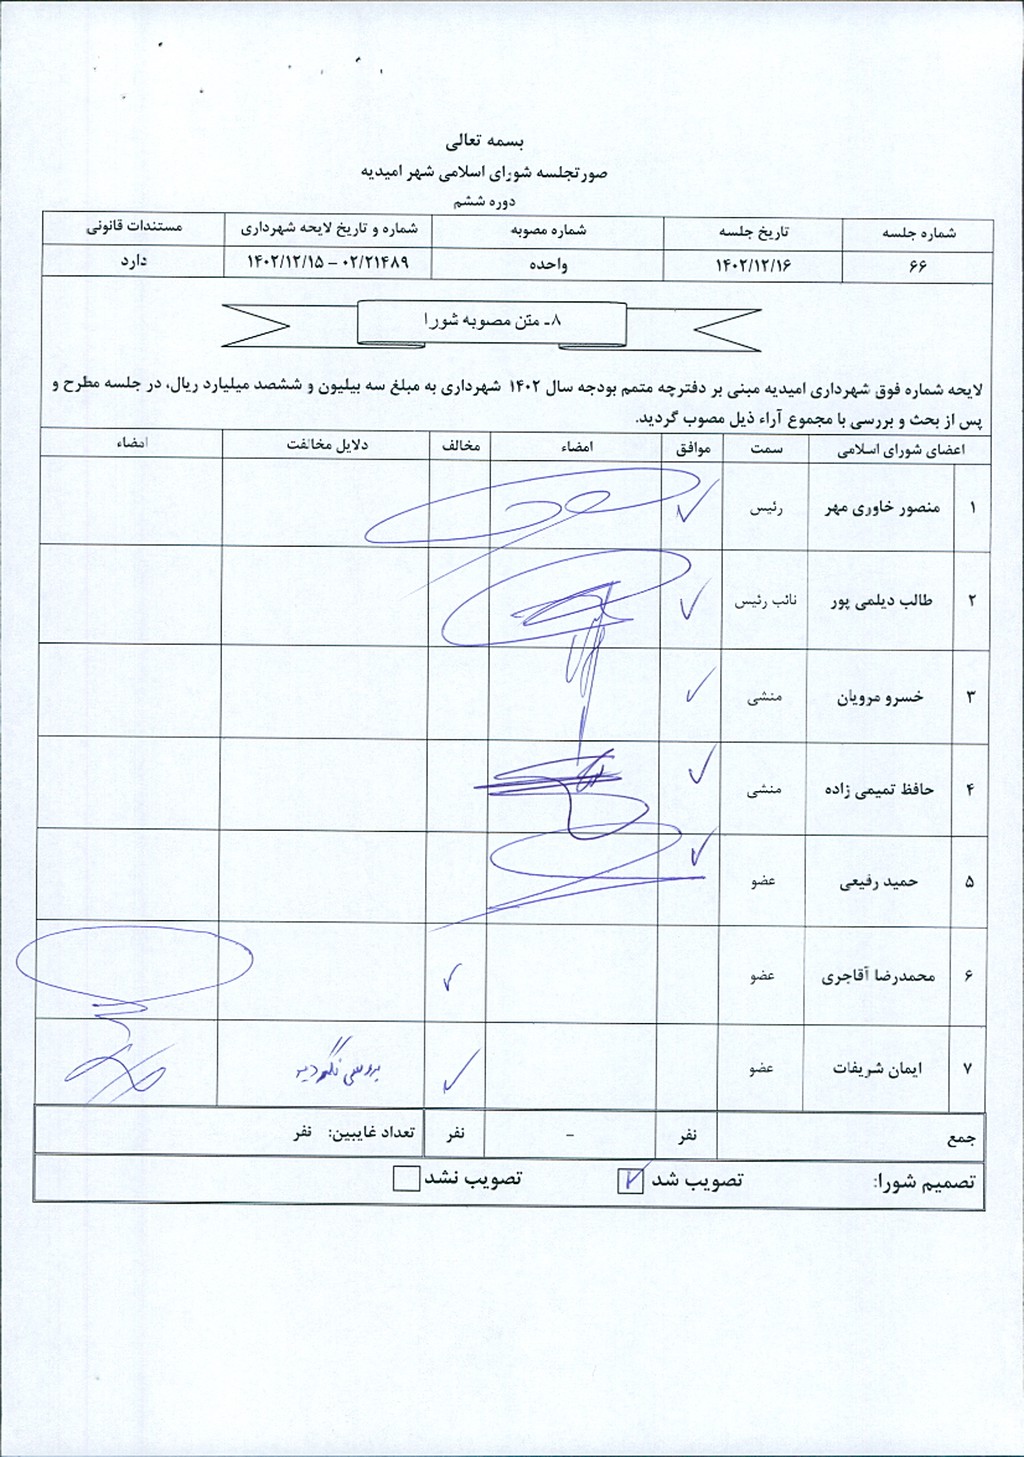 بسمه تعالی
صورتجلسه شورای اسلامی شهر امیدیه
دوره ششم
شماره جلسه تاریخ جلسه شماره مصوبه شماره و تاریخ لایحه شهرداری مستندات قانونی
۶۶ ۱۴۰۲/۱۲/۱۶ واحده ۰۲/۲۱۴۸۹ – ۱۴۰۲/۱۲/۱۵ دارد
۸- متن مصوبه شورا
لایحه شماره فوق شهرداری امیدیه مبنی بر دفترچه متمم بودجه سال ۱۴۰۲ شهرداری به مبلغ سه بیلیون و ششصد میلیارد ریال، در جلسه مطرح و
پس از بحث و بررسی با مجموع آراء ذیل مصوب گردید.
اعضای شورای اسلامی سمت موافق امضاء مخالف دلایل مخالفت امضاء
۱ منصور خاوری مهر رئیس
۲ طالب دیلمی پور نائب رئیس
۳ خسرو مرویان منشی
۴ حافظ تمیمی زاده منشی
۵ حمید رفیعی عضو
۶ محمدرضا آقاجری عضو
۷ ایمان شریفات عضو بررسی نگردید
جمع نفر - نفر تعداد غایبین: نفر
تصمیم شورا: تصویب شد تصویب نشد